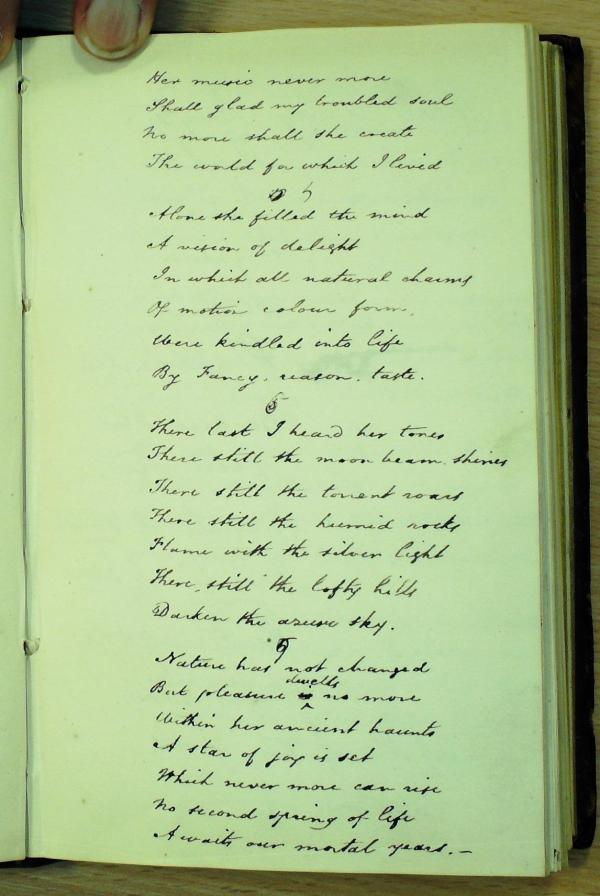 Her music never more
Shall glad my troubled soul
No more shall she create
The world for which I lived
Alone she filled the mind
A vision of delight
In which all natural charms
Of motion colour form,
Were kindled into life
By Fancy. reason. taste.
5
There last I heard her tones
There still the moon beam shines
There still the torrent roars
There still the humid rocks
Flame with the silver light
There, still the lofty hills
Darken the azure sky.
Nature has not changed
dwells
But pleasure is no more
Within her ancient haunts
A star of joy is set
Which never more can rise
No second spring of life
Awaits our mortal years. —